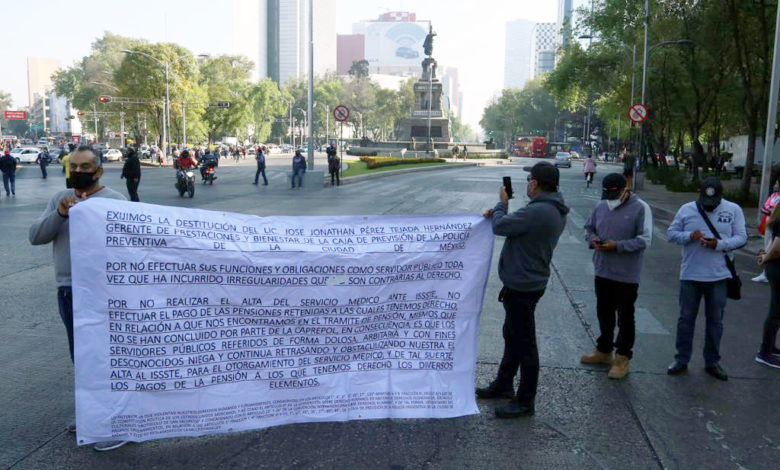 EXIJIMOS LA DESTITUCIÓN DEL LIC. JOSE JONATHAN PÉREZ TEJADA HERNÁNDEZ
GERENTE DE PRESTACIONES Y BIENESTAR DE LA CAJA DE PREVISIÓN DE LA POLICÍA
PREVENTIVA DE LA CIUDAD DE MÉXICO.
POR NO EFECTUAR SUS FUNCIONES Y OBLIGACIONES COMO SERVIDOR PÚBLICO TODA
VEZ QUE HA INCURRIDO IRREGULARIDADES QUE SON CONTRARIAS AL DERECHO.
POR NO REALIZAR EL ALTA DEL SERVICIO MEDICO ANTE ISSSTE, NO
EFECTUAR EL PAGO DE LAS PENSIONES RETENIDAS A LAS CUALES TENEMOS DERECHO
EN RELACIÓN A QUE NOS ENCONTRAMOS EN EL TRAMITE DE PENSIÓN, MISMOS QUE
NO SE HAN CONCLUIDO POR PARTE DE LA CAPREPOL, EN CONSECUENCIA, ES QUE LOS
SERVIDORES PÚBLICOS REFERIDOS DE FORMA DOLOSA, ARBITRARIA Y CON FINES
DESCONOCIDOS NIEGA Y CONTINUA RETRASANDO Y OBSTACULIZANDO NUESTRA EL
ALTA AL ISSSTE, PARA EL OTORGAMIENTO DEL SERVICIO MEDICO, Y DE TAL SUERTE,
LOS PAGOS DE LA PENSIÓN A LOS QUE TENEMOS DERECHO LOS DIVERSOS
ELEMENTOS.